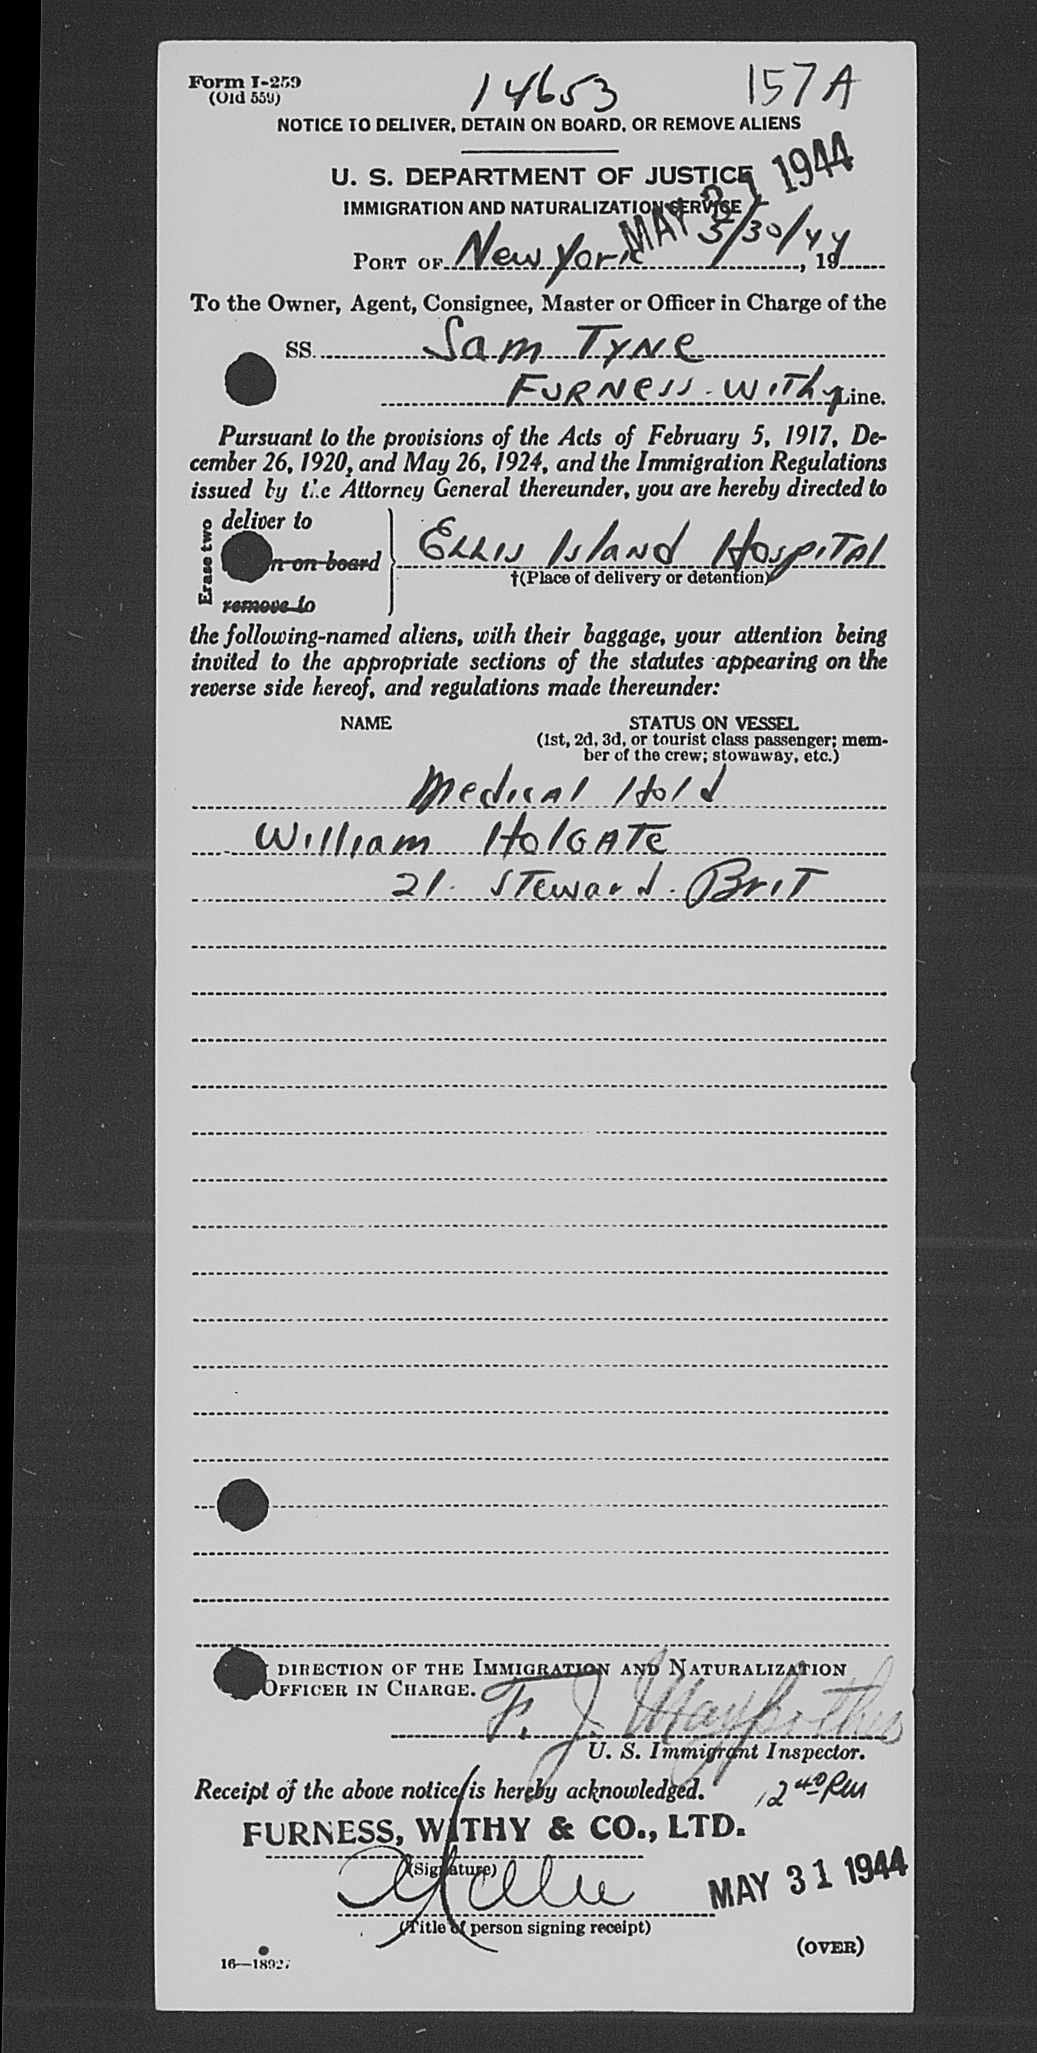 Form I-259
(Old 559)
14653
157A
NOTICE TO DELIVER, DETAIN ON BOARD, OR REMOVE ALIENS
U. S. DEPARTMENT OF JUSTICE
MAY 31 1944
IMMIGRATION AND NATURALIZATION SERVICE
PORT OF New York 5/30/44, 19
To the Owner, Agent, Consignee, Master or Officer in Charge of the
SS. Sam Tyne
Furness-Withy Line.
Pursuant to the provisions of the Acts of February 5, 1917, De-
cember 26, 1920, and May 26, 1924, and the Immigration Regulations
issued by the Attorney General thereunder, you are hereby directed to
Erase two
deliver to
n on board
remove to
Ellis Island Hospital
†(Place of delivery or detention)
the following-named aliens, with their baggage, your attention being
invited to the appropriate sections of the statutes appearing on the
reverse side hereof, and regulations made thereunder:
NAME STATUS ON VESSEL
(1st, 2d, 3d, or tourist class passenger; mem-
ber of the crew; stowaway, etc.)
Medical Hold
William Holgate
21. Steward. Brit
DIRECTION OF THE IMMIGRATION AND NATURALIZATION
OFFICER IN CHARGE.
F. J.
U. S. Immigrant Inspector.
Receipt of the above notice is hereby acknowledged. 12 40 PM
FURNESS, WITHY & CO., LTD.
(Signature)
MAY 31 1944
(Title of person signing receipt)
(OVER)
16—18927